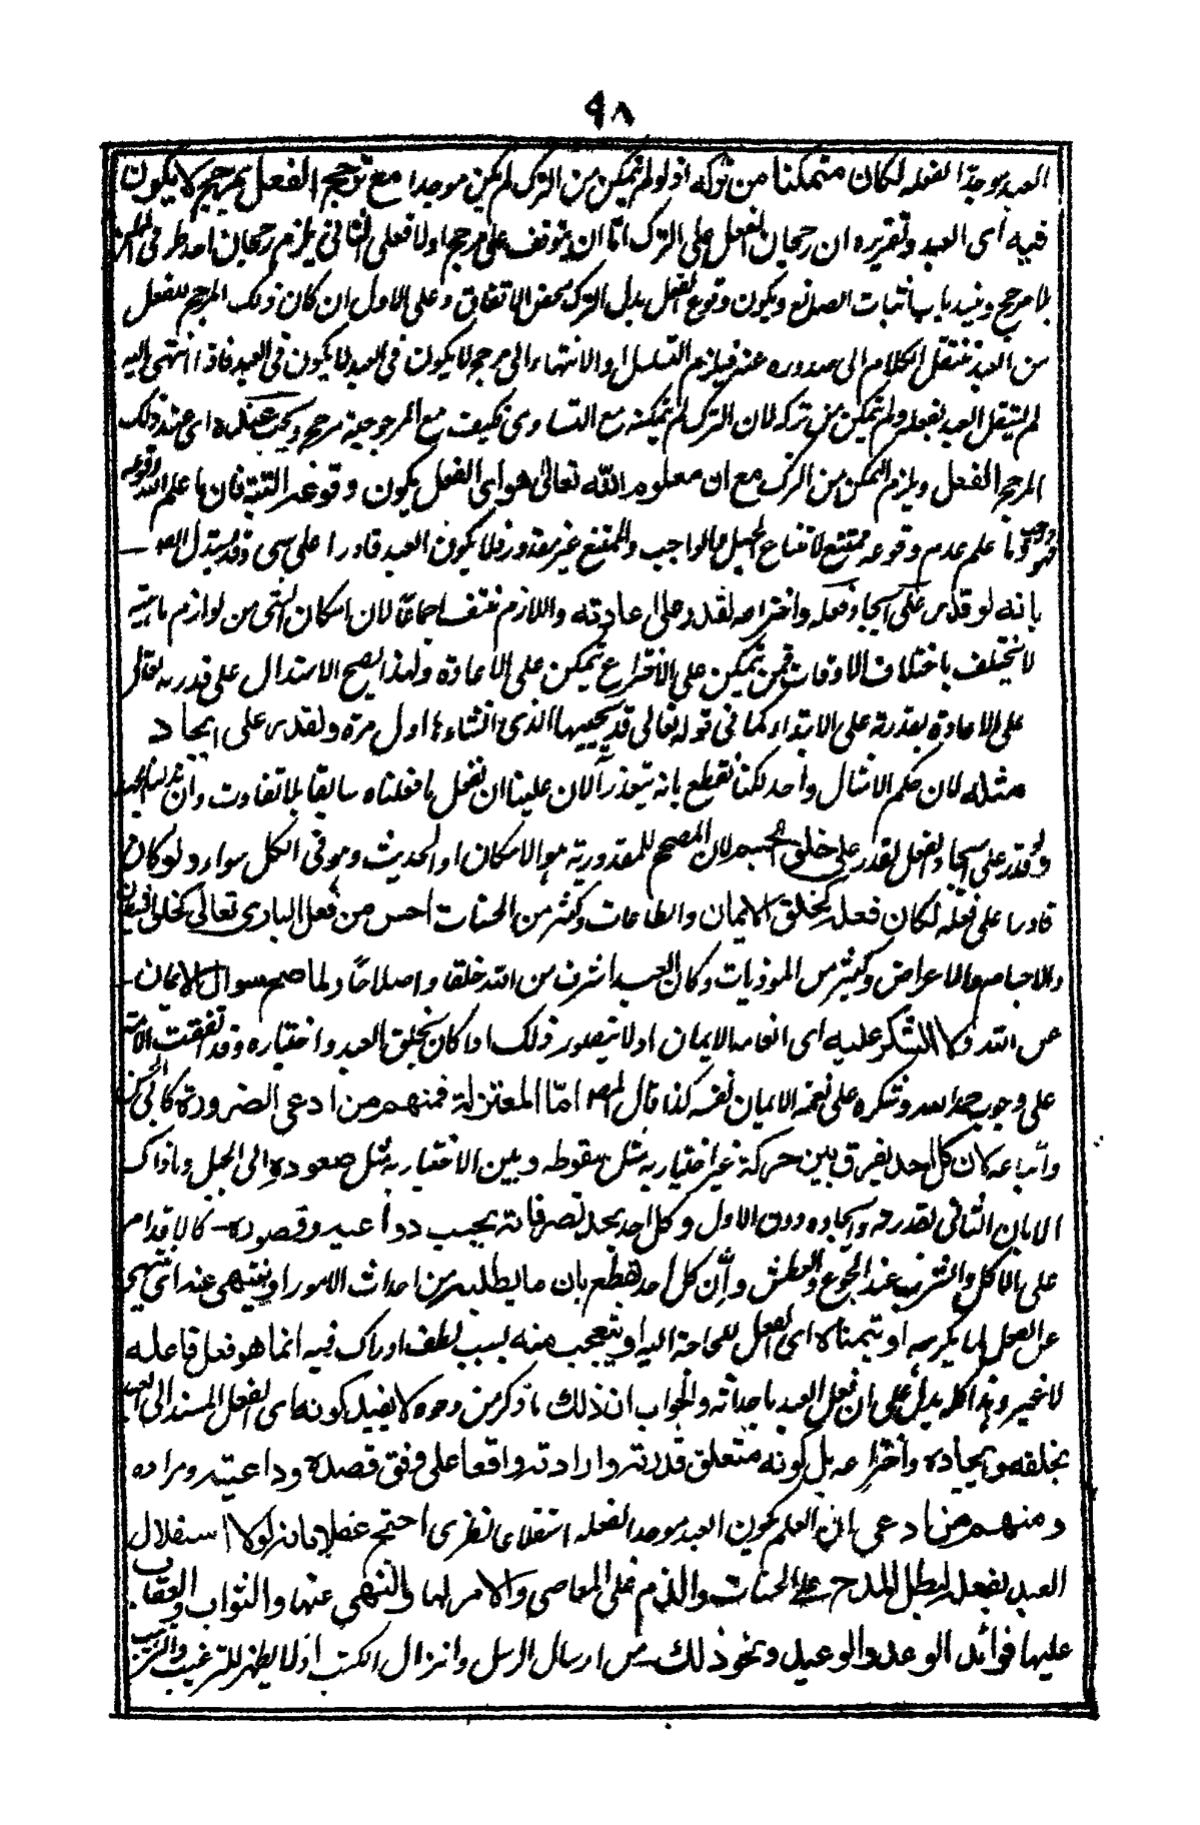 ٩٨
العبد موجدا لفعله لكان متمكنا من تركه اذ لو لم يتمكن من الترك لم يكن موجدا مع ترجيح الفعل بمرجح لا يكون
فيه اى العبد وتقريره ان رجحان الفعل على الترك اما ان يتوقف على مرجح او لا فعلى الثانى يلزم رجحان احد طرفى الممكن
بلا مرجح وينسد باب اثبات الصانع ويكون وقوع الفعل بدل الترك بمحض الاتفاق وعلى الاول ان كان ذلك المرجح للفعل
من العبد ننتقل الكلام الى صدوره عنه فيلزم التسلسل او الانتهاء الى مرجح لا يكون فى العبد لا يكون فى العبد فاذا انتهى اليه
لم يستقل العبد بفعله ولم يتمكن من تركه لان الترك لم يمكنه مع التساوى فكيف مع المرجوحية مرجح ويجب عنده اى عند ذلك
المرجح الفعل ويلزم التمكن من الترك مع ان معلوم الله تعالى هو اى الفعل يكون وقوعه البتة فان ما علم الله وقوعه
فهو وجب وما علم عدم وقوعه ممتنع لامتناع الجهل والواجب والممتنع غير مقدور فلا يكون العبد قادرا على شى وقد يستدل المص
بانه لو قدر على ايجاد فعله واختراعه لقدر على اعادته واللازم منتف اجماعا لان امكان الشئ من لوازم ماهيته
لا يختلف باختلاف الاوقات فمن يتمكن على الاختراع يتمكن على الاعادة ولهذا يصح الاستدلال على قدرته تعالى
على الاعادة بقدرته على الابتداء كما فى قوله تعالى قل يحييها الذى انشاءها اول مرة ولقدر على ايجاد
مثله لان حكم الامثال واحد لكنا نقطع بانه يتعذر الان علينا ان نفعل ما فعلناه سابقا بلا تفاوت وان
ولو قدر على ايجاد الفعل لقدر على خلق الجسم لان المصحح للمقدورية هو الامكان او الحدوث وهو فى الكل سواء ولو كان
قادرا على فعله لكان فعله كخلق الايمان والطاعات وكثير من الحسنات احسن من فعل البارى تعالى كخلق الشيطان
والاجسام والاعراض وكثير من الموذيات وكان العبد اشرف من الله خلقا واصلاحا ولما صح سوال الايمان
من الله ولا الشكر عليه اى انعامه الايمان اذ لا يتصور ذلك اذا كان بخلق العبد واختياره وقد اتفقت الامة
على وجوب حمد الله وشكره على نعمة الايمان نفسه كذا قال المص اما المعتزلة فمنهم من ادعى الضرورة كابى الحسين
واتباعه لان كل احد يفرق بين حركة غير اختيارية مثل سقوطه وبين الاختيارية مثل صعوده الى الجبل وما ذاك
الا بان الثانى بقدرته وايجاده دون الاول وكل احد يجد تصرفاته بحسب دواعيه وقصوده كالاقدام
على الاكل والشرب عند الجوع والعطش وان كل احد يقطع بان ما يطلبه من احداث الامور او ينتهى عنه اى ينتهى
عن الفعل لما يكرهه او يتمناه اى الفعل للحاجة اليه او يتعجب منه بسبب لطف ادراك فيه انما هو فعل فاعله
لا غير وهذا كله يدل على ان فعل العبد باحداثه والجواب ان ذلك ما ذكر من وجوه لا يفيد كونه اى الفعل المسند الى العبد
بخلقه وايجاده واختراعه بل كونه متعلق قدرته وارادته واقعا على وفق قصده وداعيته ومراده
ومنهم من ادعى ان العلم بكون العبد موجد الفعله استقلالا نظرى احتج عقلا بانه لولا استقلال
العبد بفعله لبطل المدح على الحسنات والذم على المعاصى والامر لها والنهى عنها والثواب والعقاب
عليها فوائد الوعد والوعيد ونحو ذلك من ارسال الرسل وانزال الكتب اذ لا يظهر للترغيب والترهيب